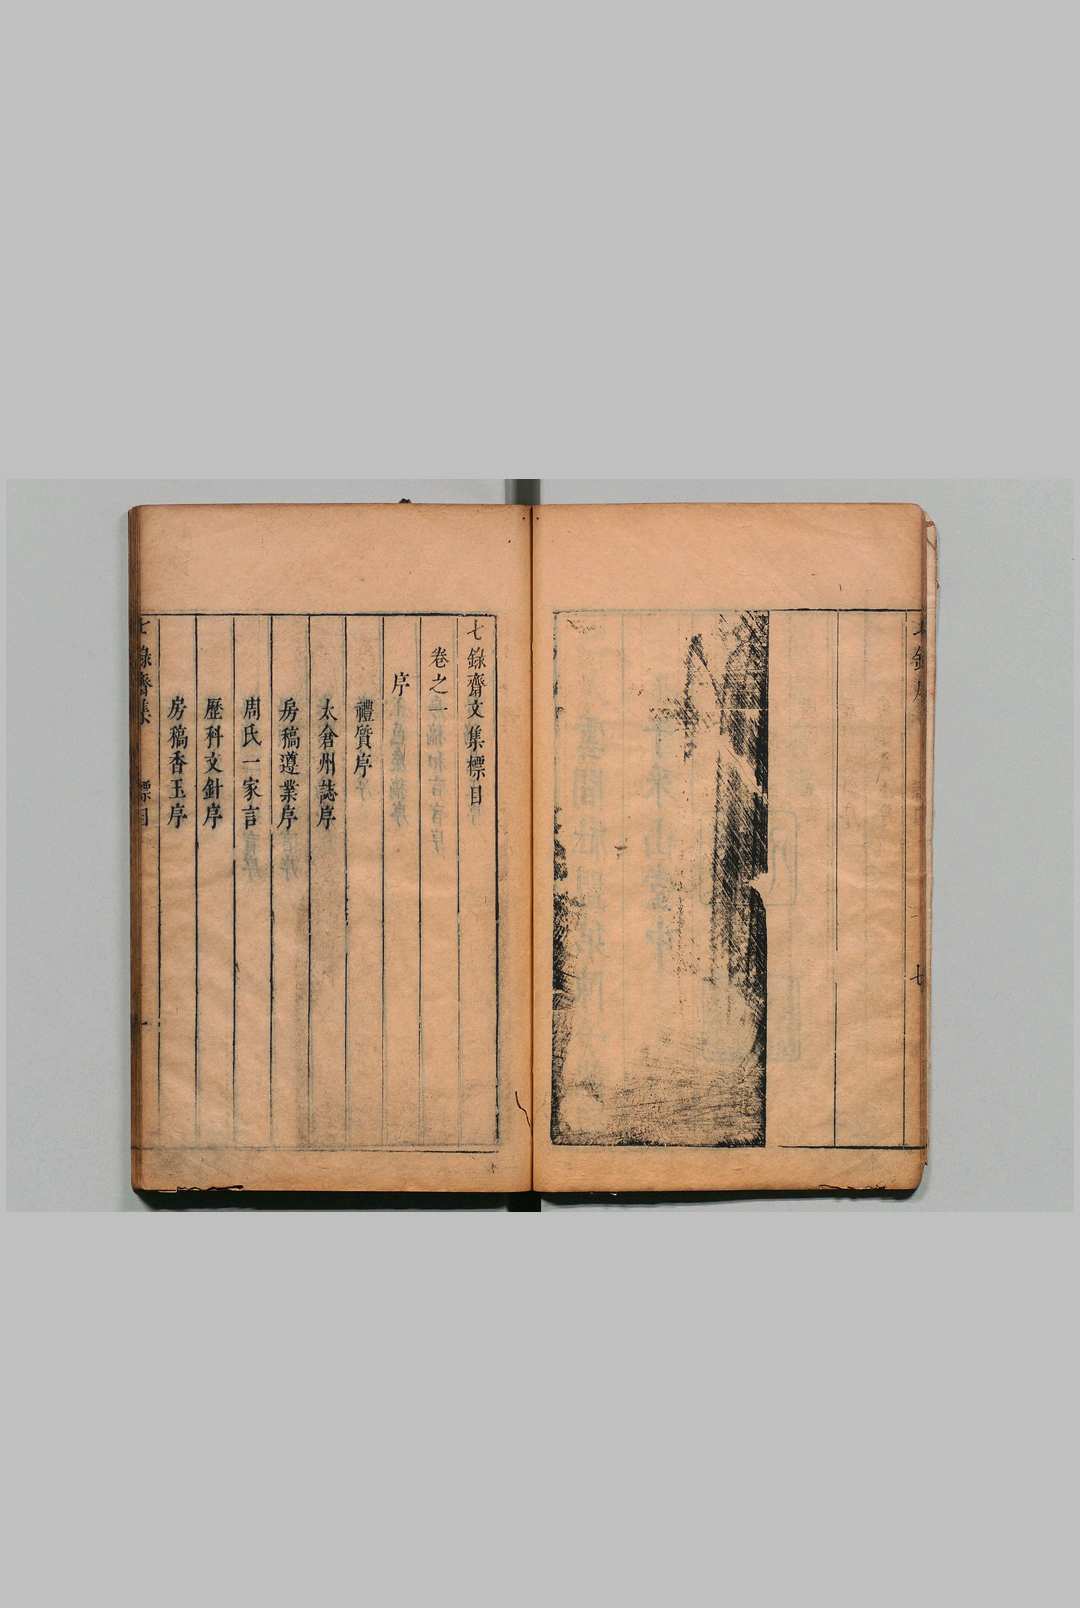 七錄齋文集標目
卷之一
序
禮質序
太倉州誌序
房稿遵業序
周氏一家言
歷科文針序
房稿香玉序
七錄齋集
標目
一